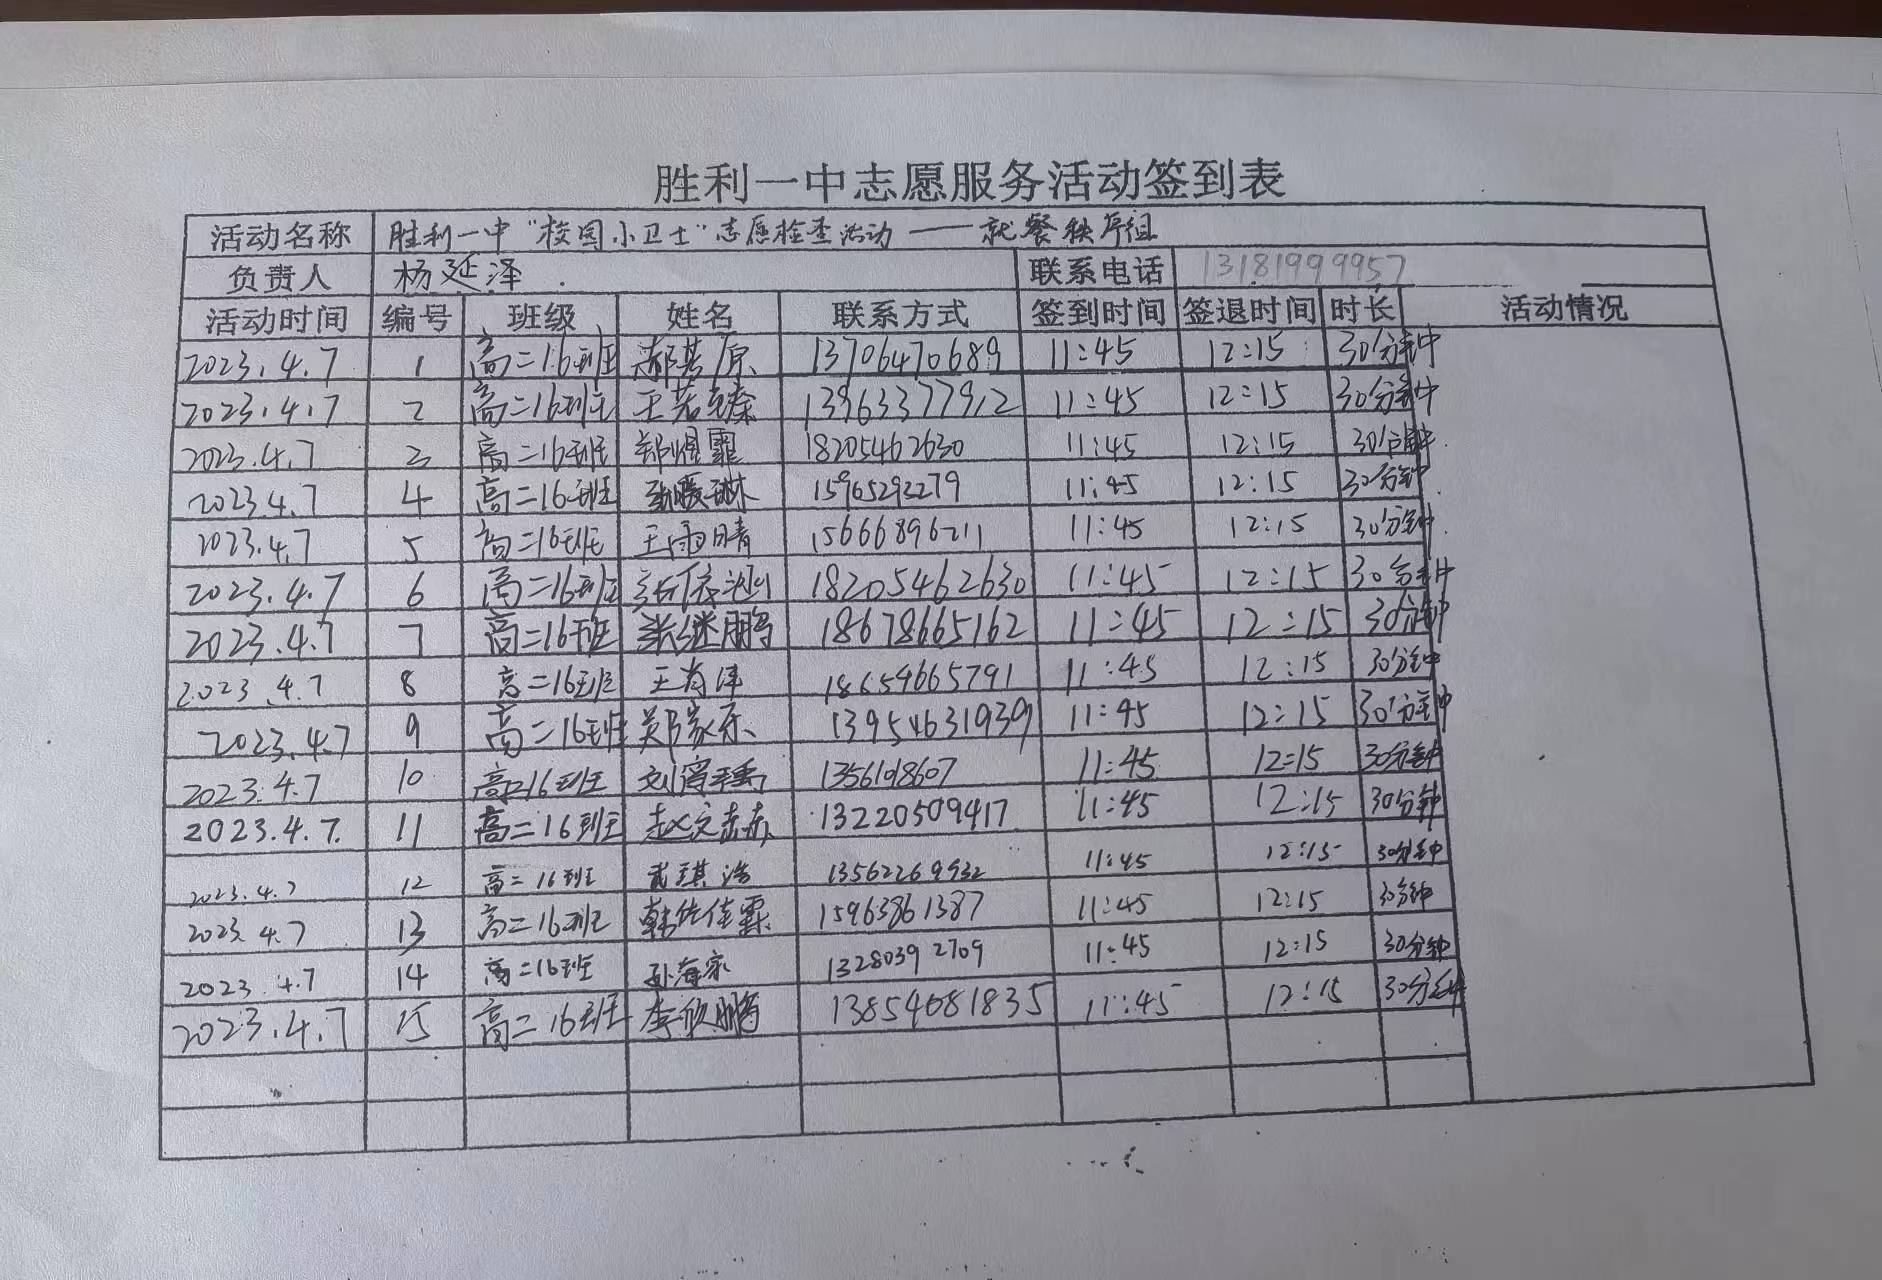 胜利一中志愿服务活动签到表
活动名称 胜利一中“校园小卫士”志愿检查活动——就餐秩序组
负责人 杨延泽 联系电话 13181999957
活动时间 编号 班级 姓名 联系方式 签到时间 签退时间 时长 活动情况
2023.4.7 1 高二16班 郝其原 13706470689 11:45 12:15 30分钟
2023.4.7 2 高二16班 王若臻 13963377912 11:45 12:15 30分钟
2023.4.7 3 高二16班 郑煜霏 18205462630 11:45 12:15 30分钟
2023.4.7 4 高二16班 张暖琳 15965293279 11:45 12:15 30分钟
2023.4.7 5 高二16班 王雨晴 15666896211 11:45 12:15 30分钟
2023.4.7 6 高二16班 18205462630 11:45 12:15 30分钟
2023.4.7 7 高二16班 张继鹏 18678665162 11:45 12:15 30分钟
2023.4.7 8 高二16班 王肖洋 18654665791 11:45 12:15 30分钟
2023.4.7 9 高二16班 郑家乐 13954631939 11:45 12:15 30分钟
2023.4.7 10 高二16班 刘 13561018607 11:45 12:15 30分钟
2023.4.7. 11 高二16班 赵文 13220509417 11:45 12:15 30分钟
2023.4.7 12 高二16班 武琪浩 13562269932 11:45 12:15 30分钟
2023.4.7 13 高二16班 韩佐佳霖 15963861387 11:45 12:15 30分钟
2023.4.7 14 高二16班 孙海家 13280392709 11:45 12:15 30分钟
2023.4.7 15 高二16班 李欣鹏 13854681835 11:45 12:15 30分钟